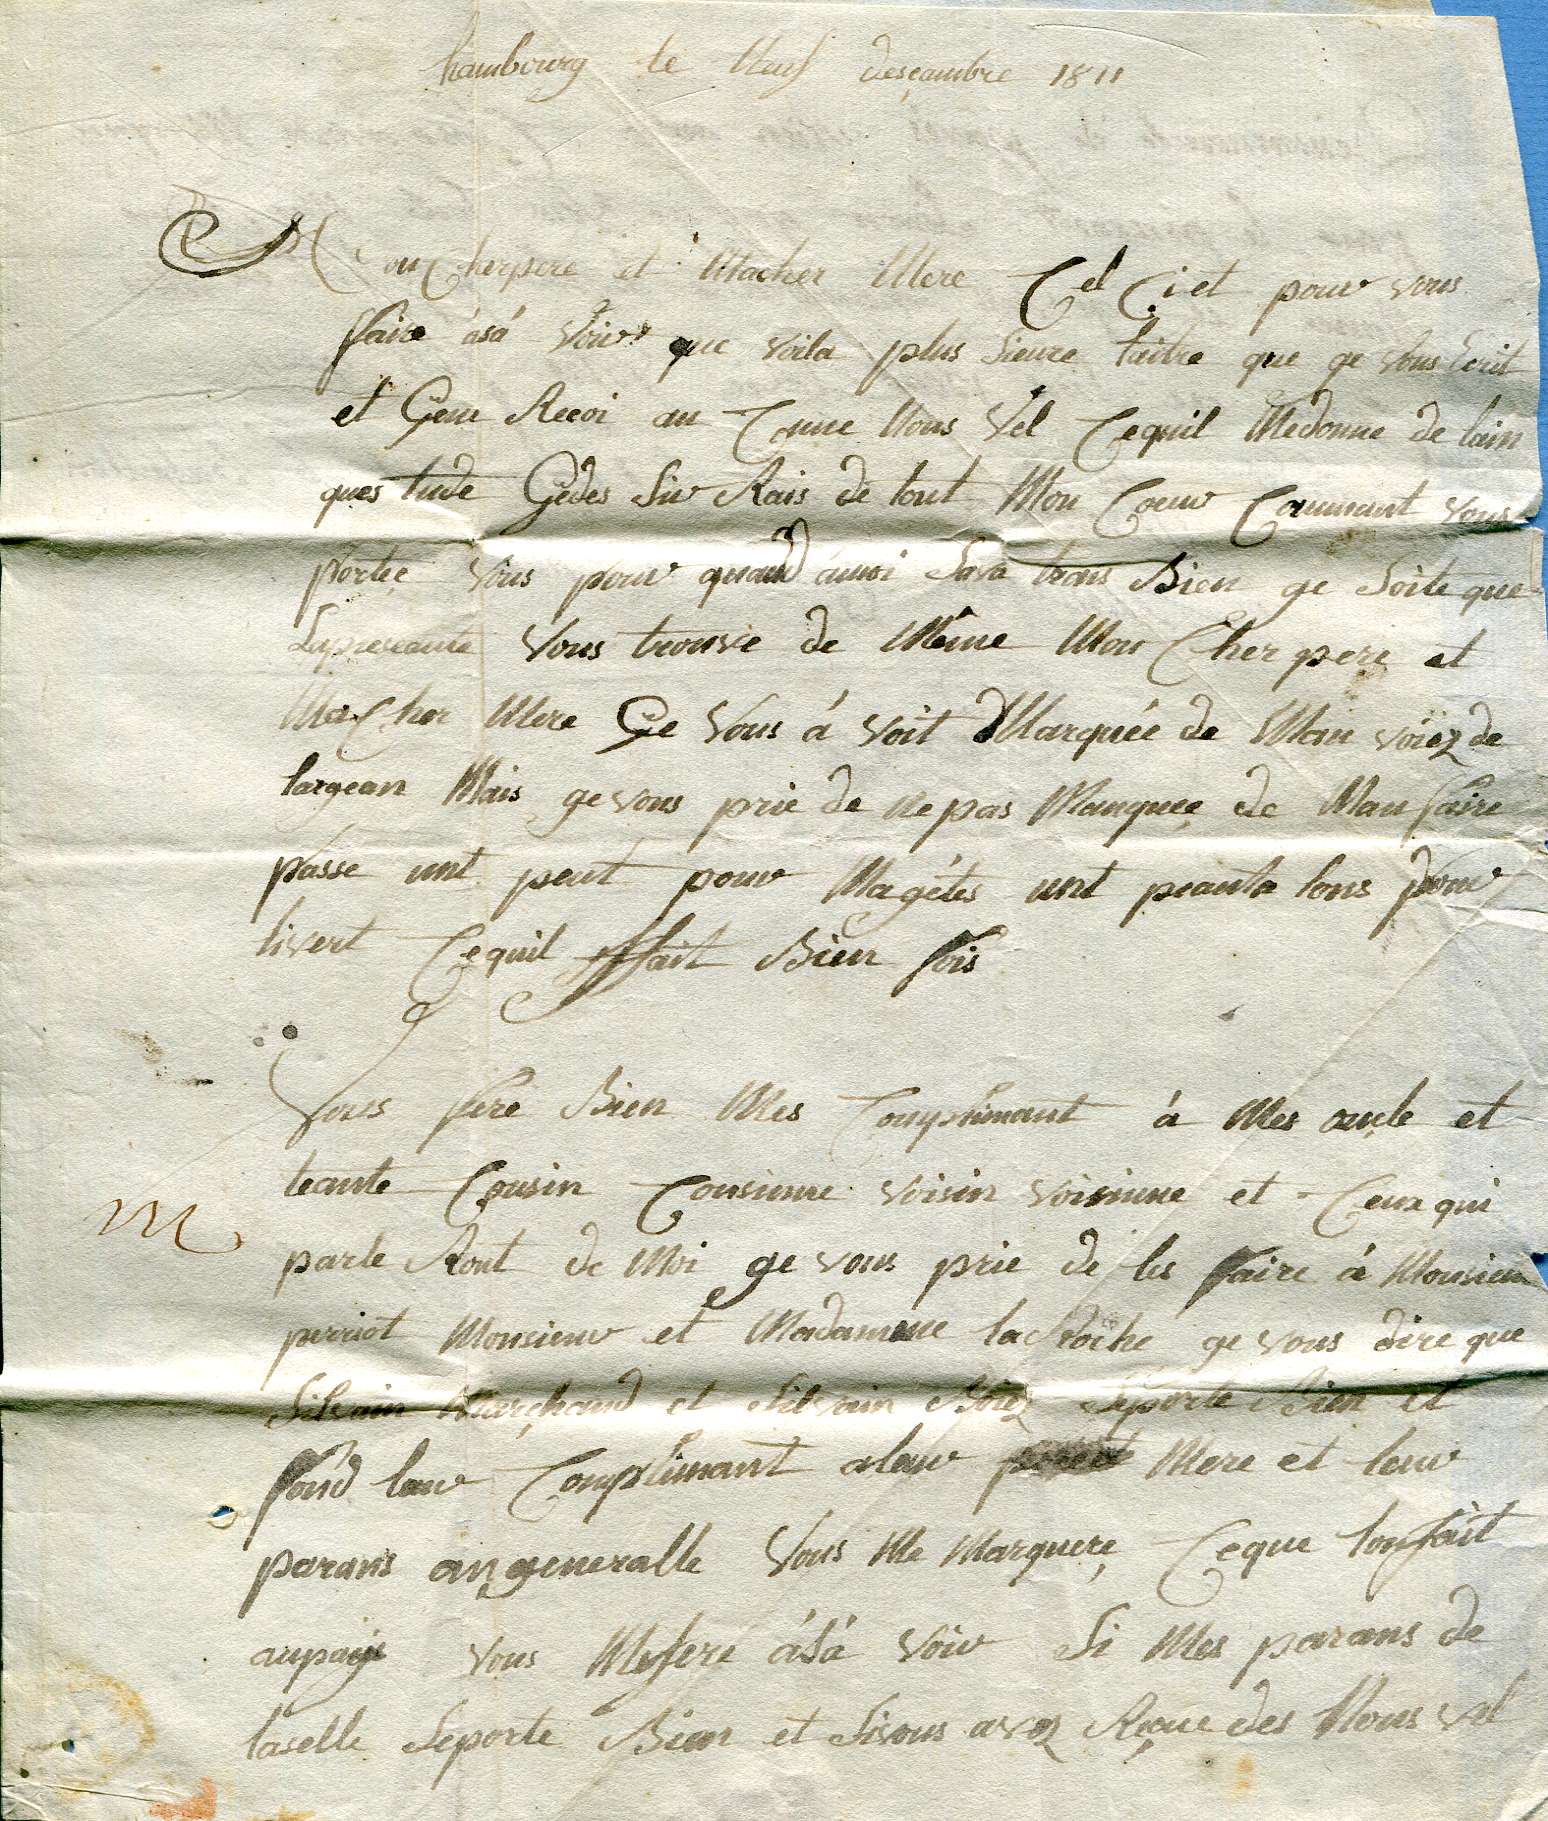 hambourg le Neuf desçambre 1811
Mon Cherpere et Macher Mere Cel Ci et pour vous
faire àsà voir que voila plus sieure laitre que ge vous Ecrit
et Gene Recoi au Cune Nous vel Cequil Medonne de lain
ques tude Gedes sir Rais de tout Mon Coeur Coumant vous
porteç vous pour quand amoi sava trais Bien ge soite que
Lapreseante vous trouve de Même Mon Cher pere et
Ma Cher Mere Ge vous à voit Marquée de Man voiez de
largean Mais ge vous prie de ne pas Manqueç de Man faire
passe unt peut pour Magétes unt peanta lons pour
livert Cequil ffait Bien fois
Vous feré Bien Mes Complimant à Mes oncle et
teante Cousin Cousinne voisin voisinne et Ceux qui
parle Ront de Moi ge vous prie de les faire à Monsieur
perriot Monsieur et Madamme la Roche ge vous dire que
Silvain Marchand et Silvain Seporte Bien et
fond leur Complimant aleur Mere et leur
parans an generalle vous Me Marquere Ceque lonfait
aupayi vous Meferé àsà voir Si Mes parans de
laselle Seporte Bien et Sivous avez Reçue des Nous vel
M